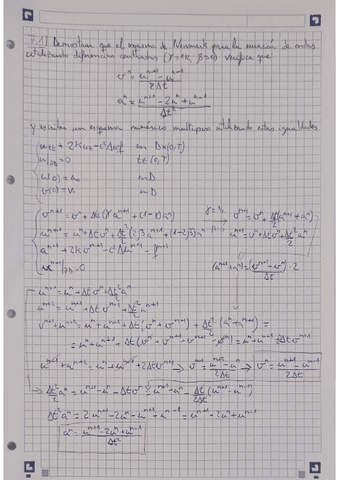 7.1) Demostrar que el esquema de Newmark para la ecuación de ondas
utilizando diferencias centradas (γ=1/2, β=0) verifica que
v^n = (u^{n+1} - u^{n-1})/(2Δt)
a^n = (u^{n+1} - 2u^n + u^{n-1})/Δt²
y escribir un esquema numérico multipaso utilizando estas igualdades
u_tt + 2Ku_t - c²Δu = f en D×(0,T)
u|∂D = 0 t∈(0,T)
u(0) = u₀ en D
v(0) = v₀ en D
v^{n+1} = v^n + Δt(γa^{n+1} + (1-γ)a^n) γ=1/2 v^{n+1} = v^n + Δt/2(a^{n+1} + a^n)
u^{n+1} = u^n + Δt v^n + Δt²/2(2βa^{n+1} + (1-2β)a^n) β=0 u^{n+1} = u^n + Δt v^n + Δt²/2 a^n
a^{n+1} + 2Kv^{n+1} - c²Δu^{n+1} = f^{n+1}
u^{n+1}|∂D = 0 (a^{n+1} + a^n) = (v^{n+1} - v^n)/Δt · 2
u^{n+1} = u^n + Δt v^n + Δt²/2 a^n
u^{n+2} = u^{n+1} + Δt v^{n+1} + Δt²/2 a^{n+1}
u^{n+1} + u^{n+2} = u^n + u^{n+1} + Δt(v^n + v^{n+1}) + Δt²/2(a^n + a^{n+1}) =
= u^n + u^{n+1} + Δt(v^n + v^{n+1} + v^{n+1} - v^n) = u^n + u^{n+1} + 2Δt v^{n+1}
u^{n+1} + u^{n+2} = u^n + u^{n+1} + 2Δt v^{n+1} → v^{n+1} = (u^{n+2} - u^n)/(2Δt) → v^n = (u^{n+1} - u^{n-1})/(2Δt)
→ Δt²/2 a^n = u^{n+1} - u^n - Δt v^n = u^{n+1} - u^n - Δt/(2Δt)(u^{n+1} - u^{n-1})
Δt² a^n = 2u^{n+1} - 2u^n - u^{n+1} + u^{n-1} = u^{n+1} - 2u^n + u^{n-1}
a^n = (u^{n+1} - 2u^n + u^{n-1})/Δt²